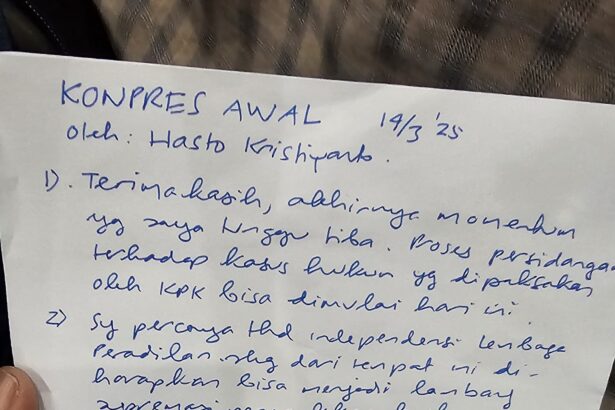 KONPRES AWAL 14/3 '25
Oleh: Hasto Kristiyanto.
1). Terima kasih, akhirnya momentum
yg saya tunggu tiba. Proses persidangan
terhadap kasus hukum yg dipaksakan
oleh KPK bisa dimulai hari ini.
2) Sy percaya thd independensi lembaga
Peradilan. shg dari tempat ini di-
harapkan bisa menjadi lambang
supremasi